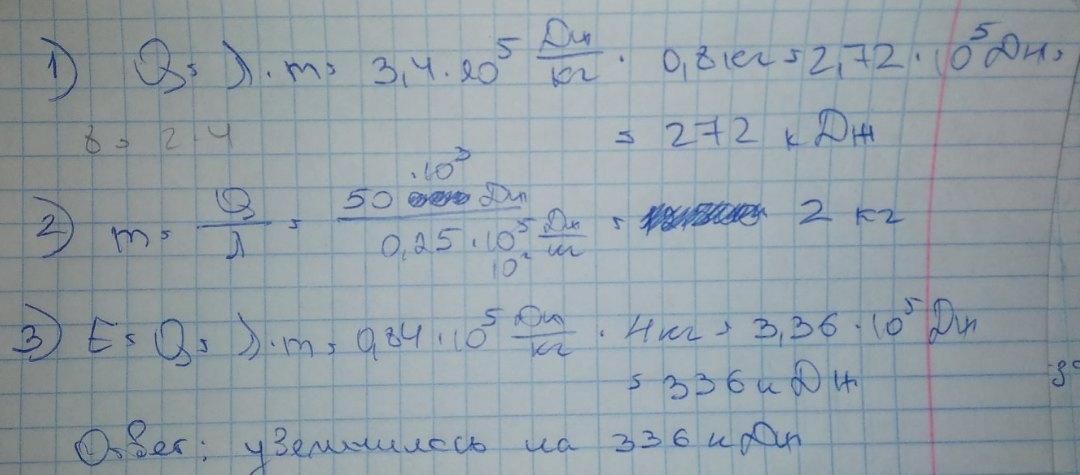 1) Q = λ · m = 3,4 · 10^5 Дж/кг · 0,8 кг = 2,72 · 10^5 Дж =
8 = 2 · 4
= 272 кДж
2) m = Q/λ = 50 · 10^3 Дж / 0,25 · 10^5 Дж/кг = 2 кг
10^2
3) E = Q = λ · m = 0,84 · 10^5 Дж/кг · 4 кг = 3,36 · 10^5 Дж
= 336 кДж
Ответ: увеличилась на 336 кДж